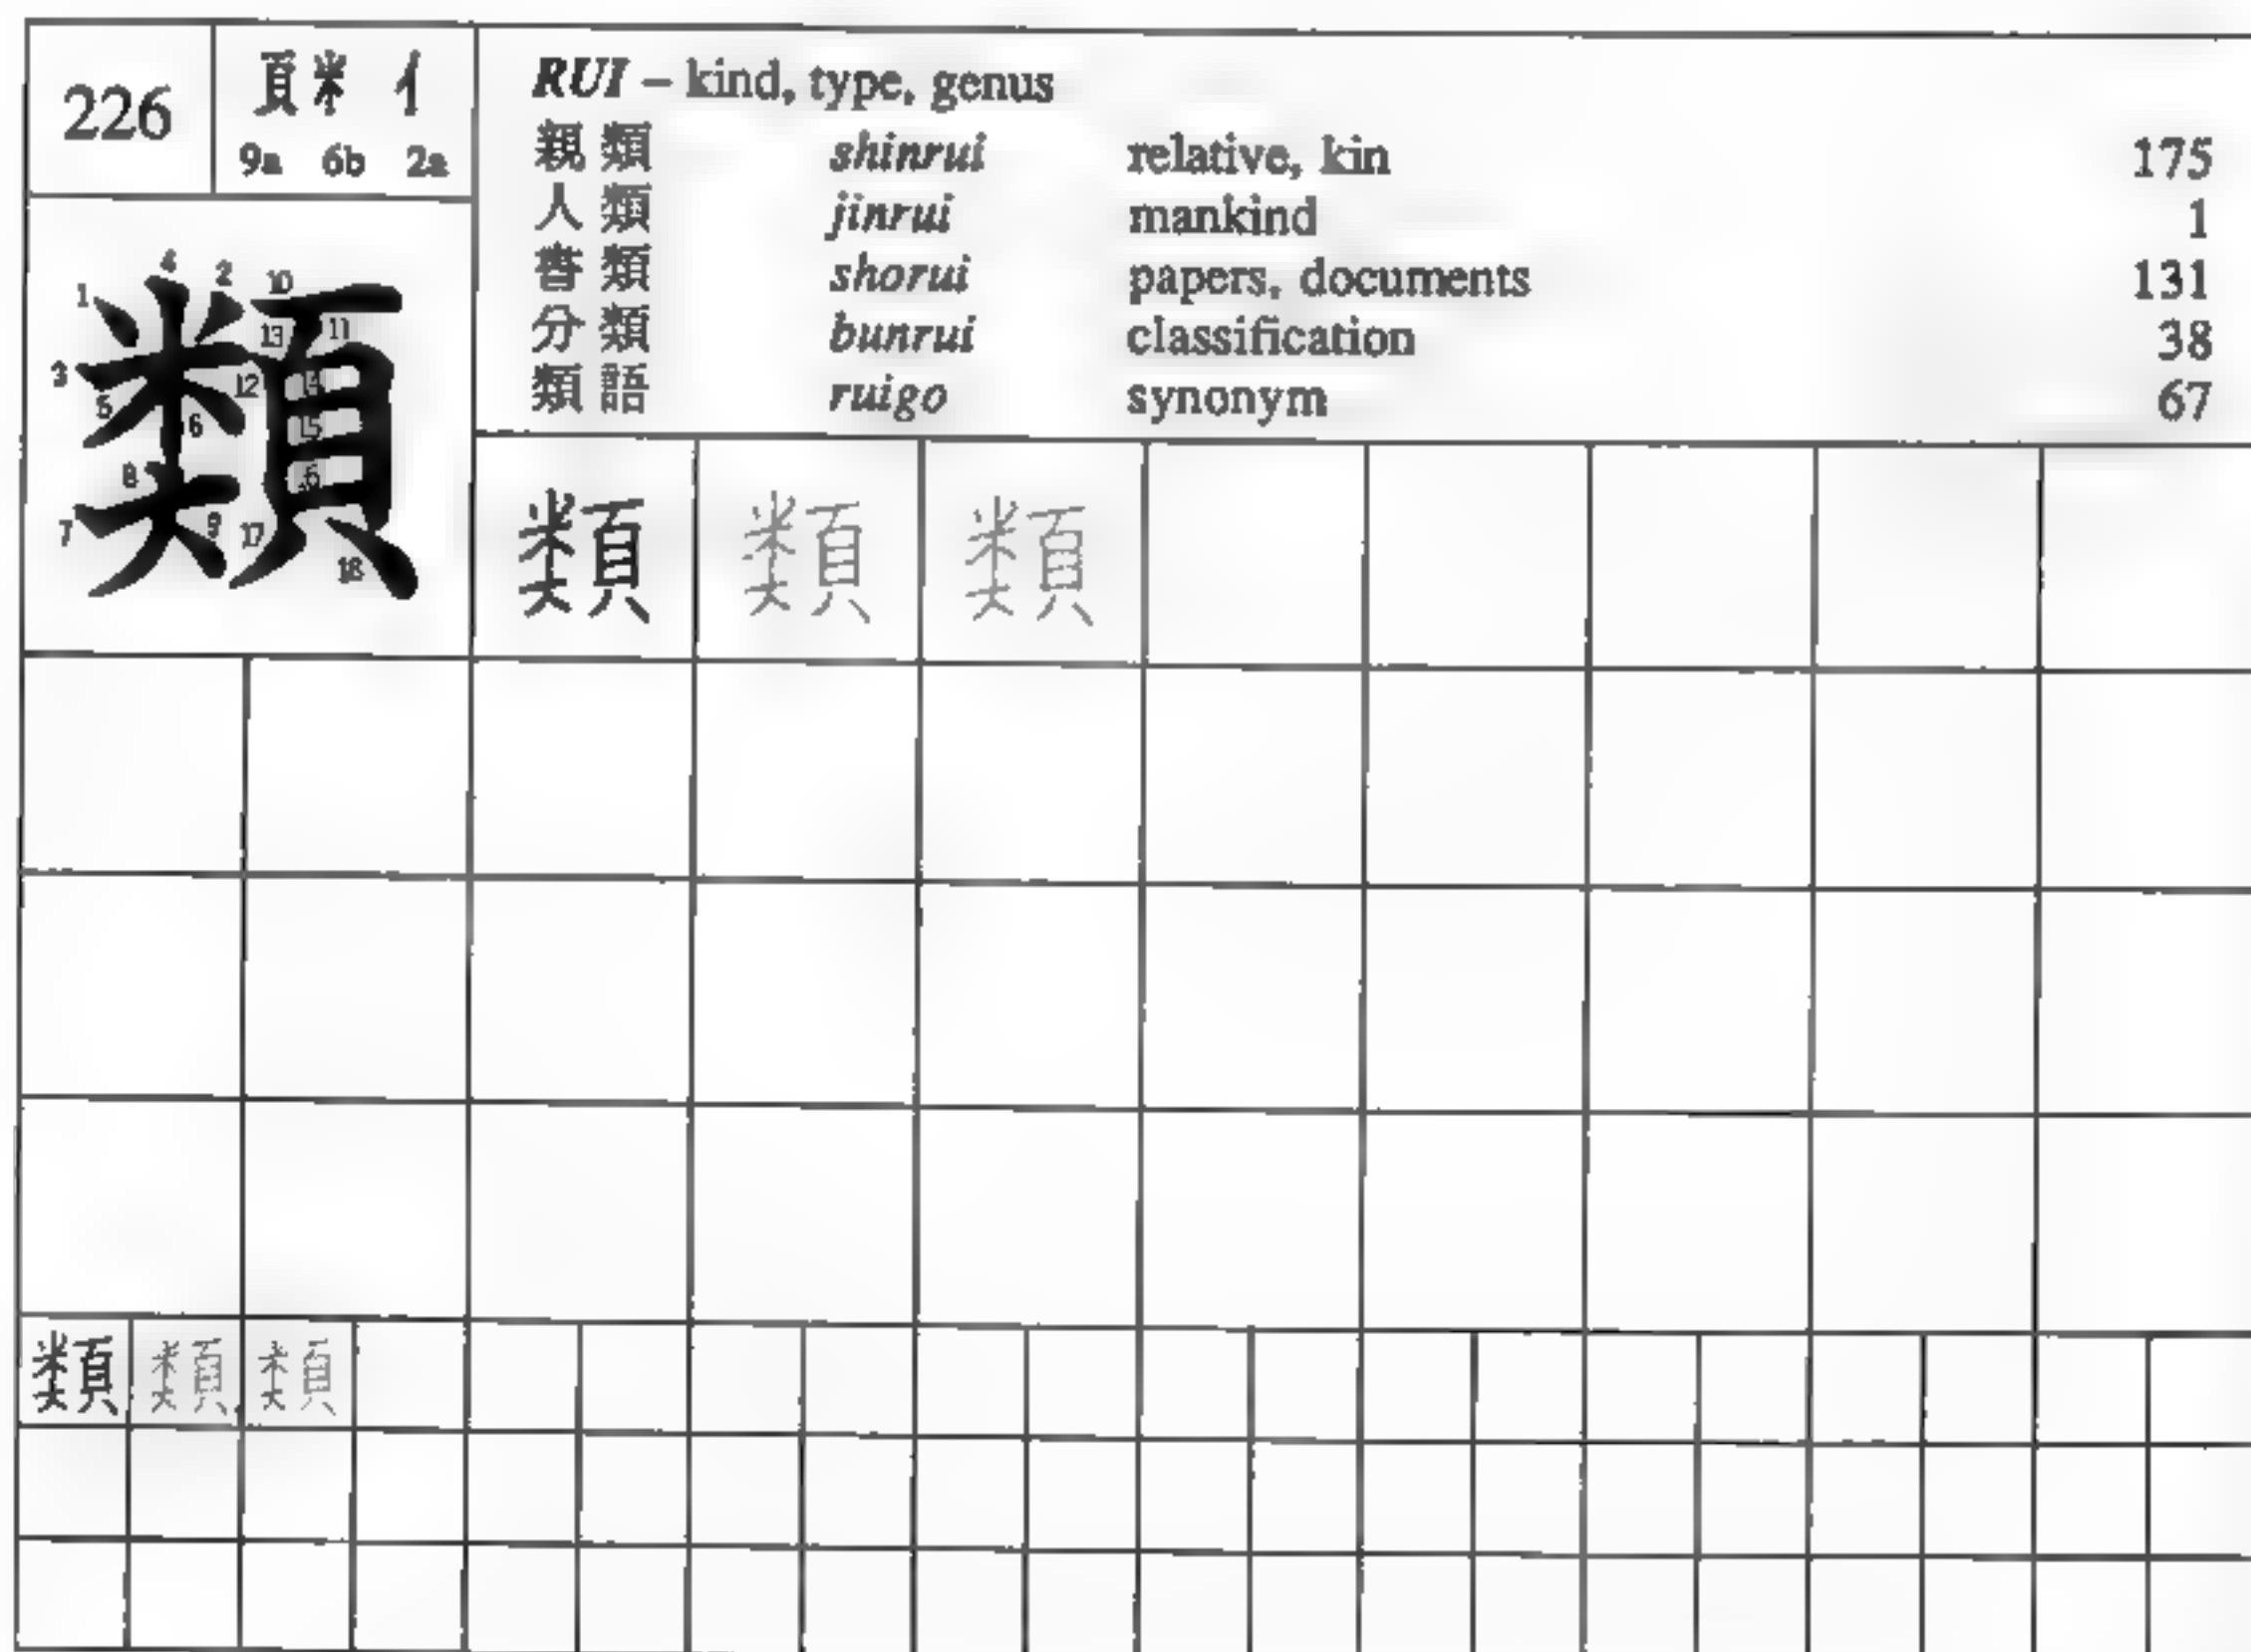 226
頁 米 亻
9a 6b 2a
RUI – kind, type, genus
親類 shinrui relative, kin 175
人類 jinrui mankind 1
書類 shorui papers, documents 131
分類 bunrui classification 38
類語 ruigo synonym 67
類
1 2 3 4 5 6 7 8 9 10 11 12 13 14 15 16 17 18
類 類 類
類 類 類